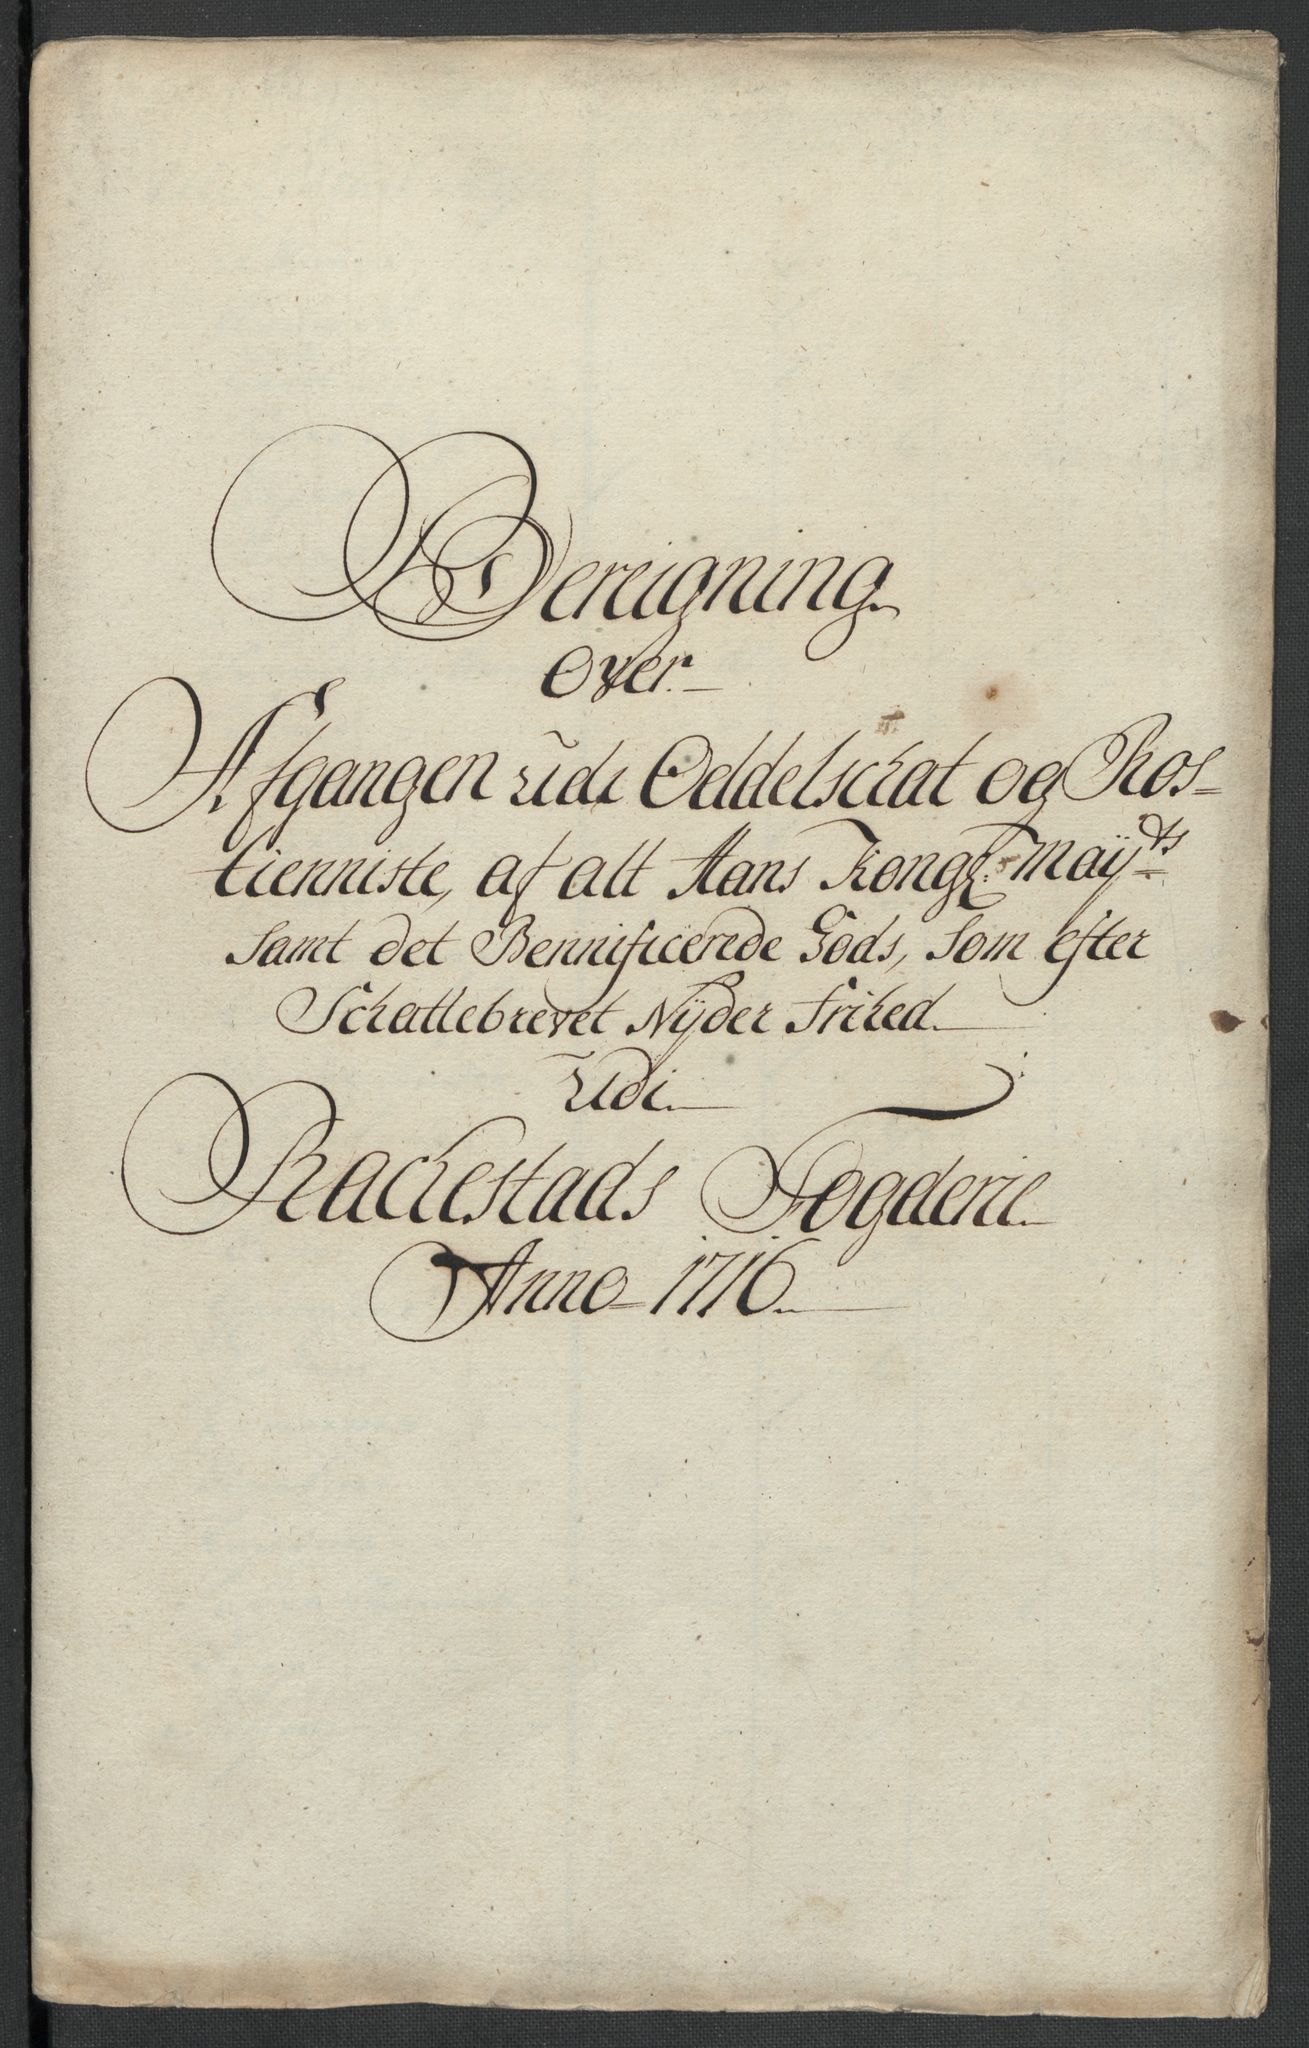 Bereigning
Over
Afgangen udi Oddelschat og Ros-
tienniste, af alt Hans Kongl: Maÿts
Samt det Bennificerede Gods, Som efter
Schattebrevet Nÿder Frihed
Udi
Rackestads Fogderie
Anno 1716